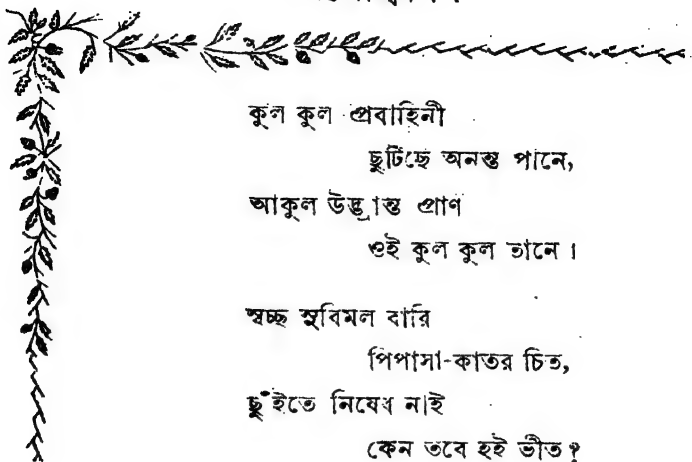 কুল কুল প্রবাহিনী
ছুটিছে অনন্ত পানে,
আকুল উদ্ভ্রান্ত প্রাণ
ওই কুল কুল তানে।
স্বচ্ছ সুবিমল বারি
পিপাসা-কাতর চিত,
ছুঁইতে নিষেধ নাই
কেন তবে হই ভীত?